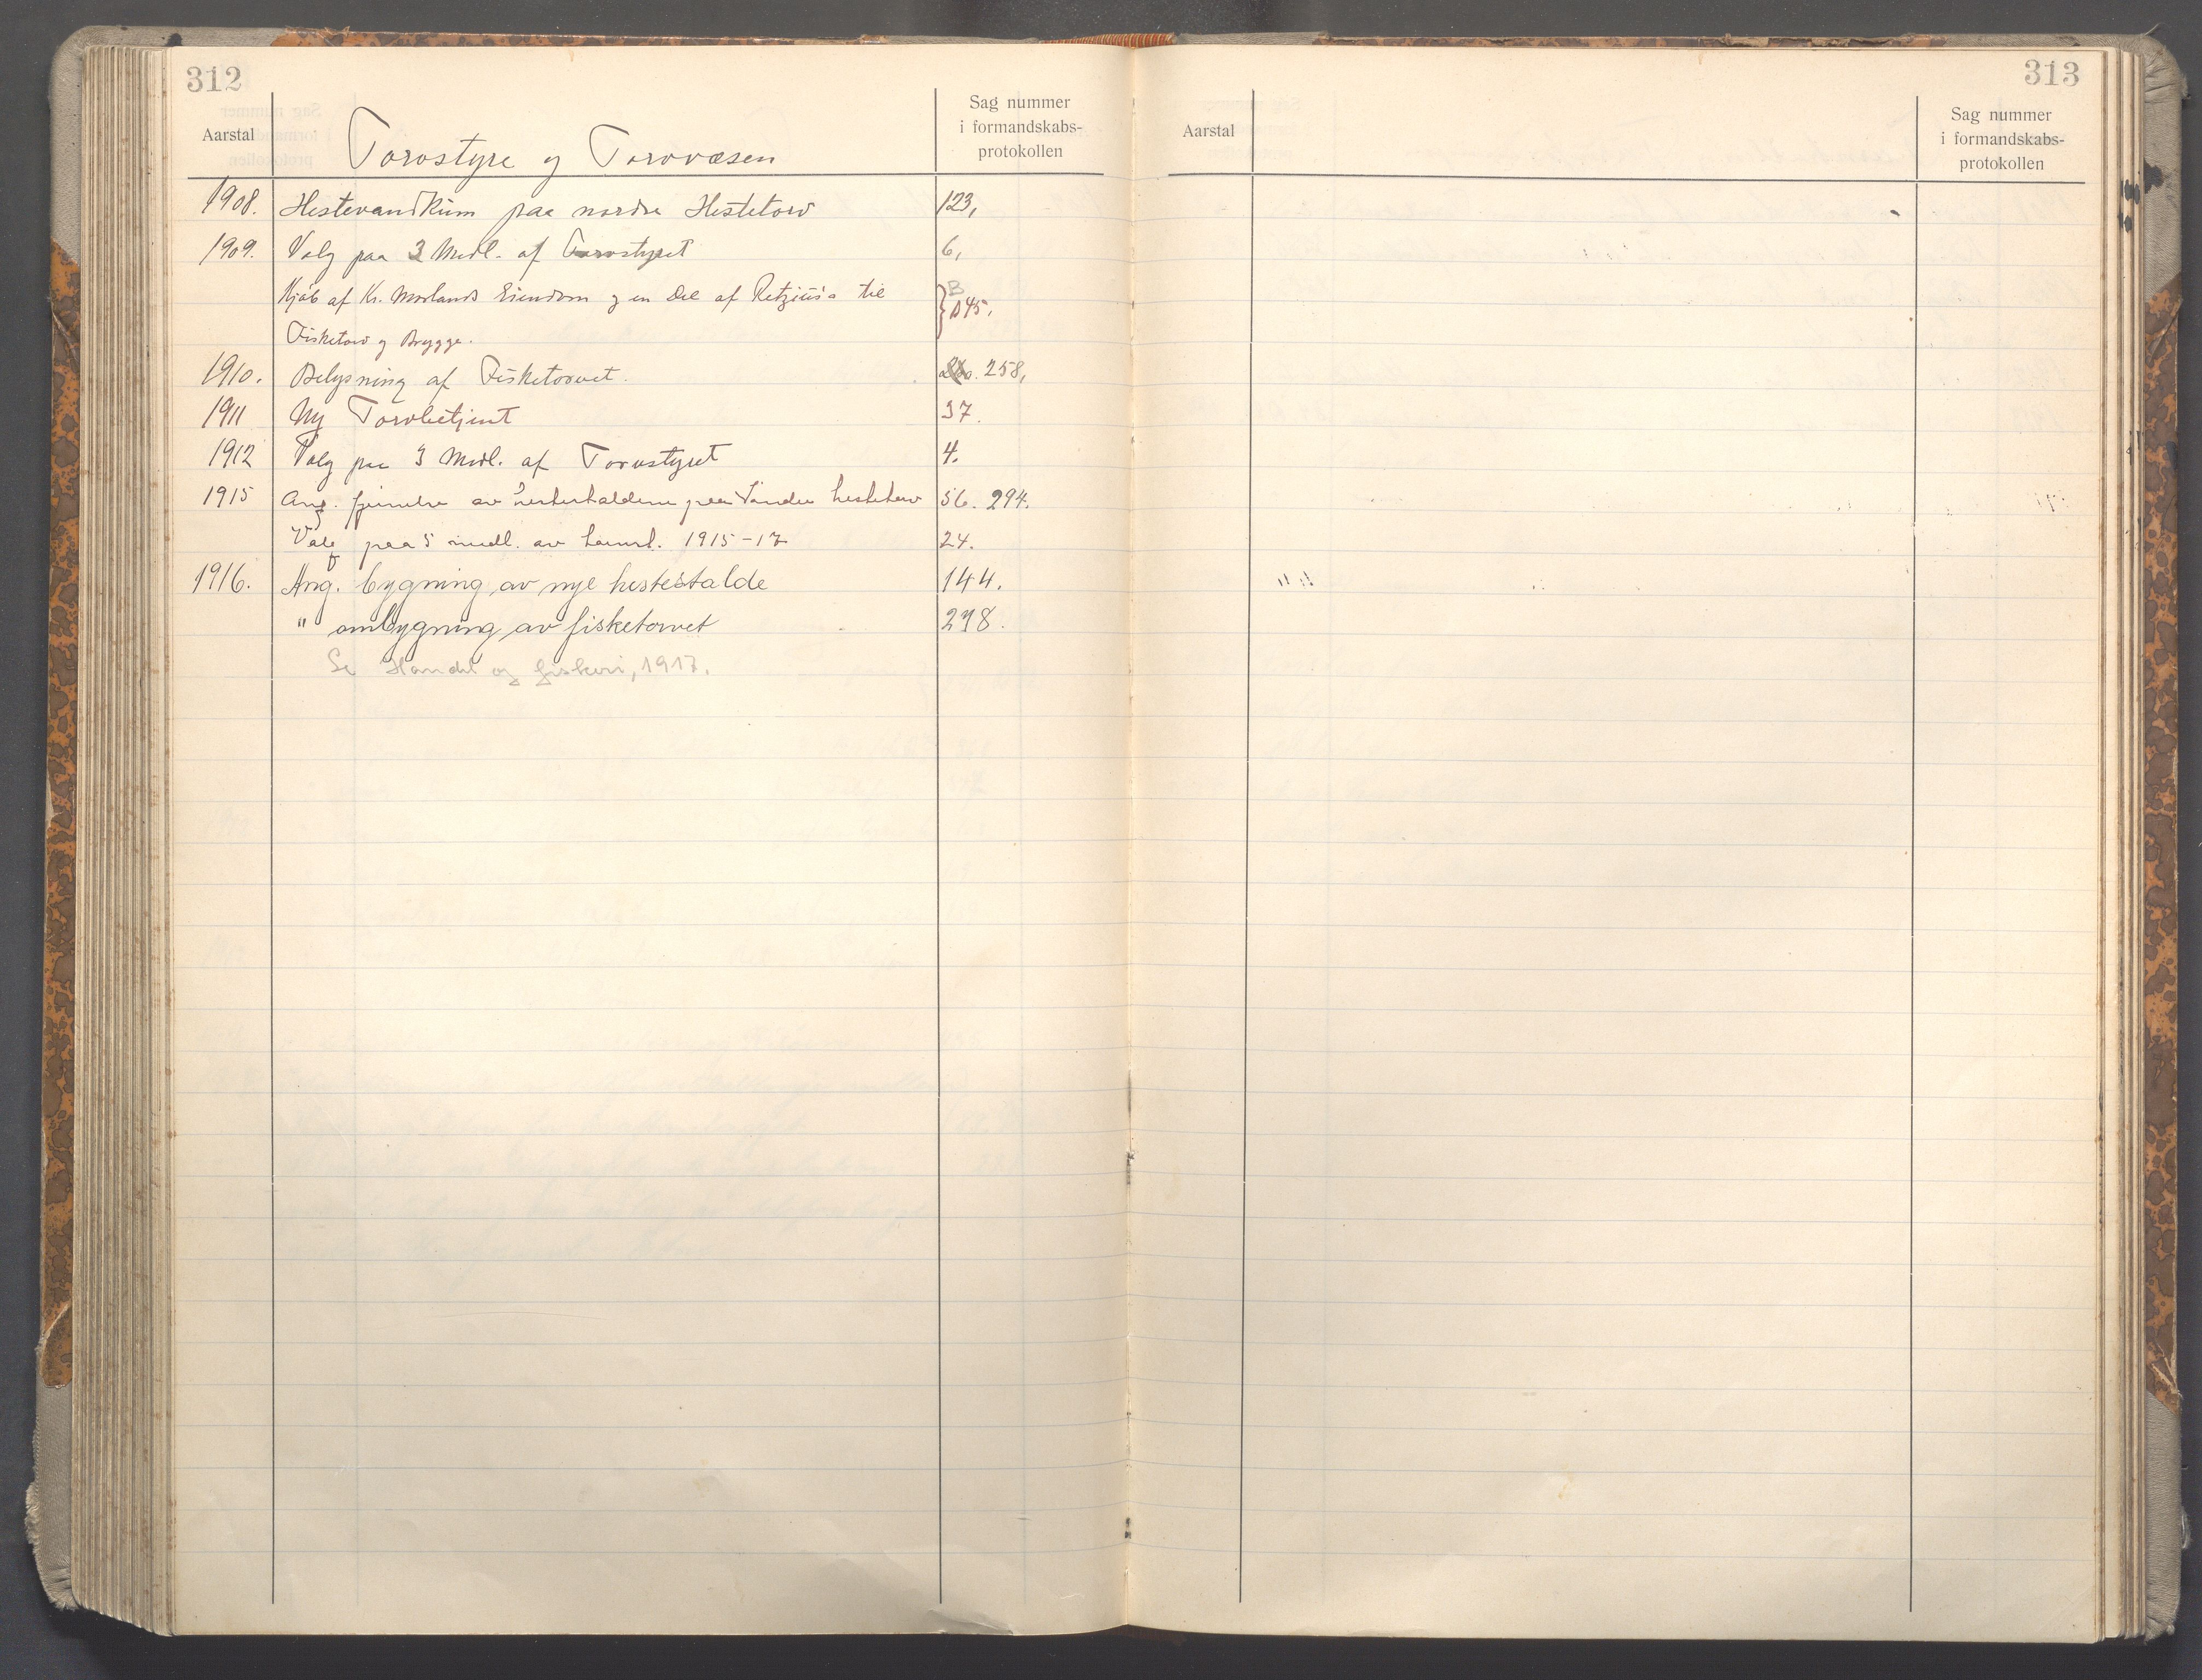 312
Aarstal
Torvstyre og Torvvæsen
Sag nummer
i formandskabs-
protokollen
1908. Hestevandkum paa nordre Hestetorv 123,
1909. Valg paa 3 Medl. af Torvstyret 6,
Kjøb af Kr. Morlands Eiendom og en Del af Retzius's til B 145,
Fisketorv og Brygge.
1910. Belysning af Fisketorvet. 258,
1911 Ny Torvbetjent 37.
1912 Valg paa 3 Medl. af Torvstyret 4.
1915 Ang. fjernelse av hestestaldene paa søndre hestetorv 56. 294.
Valg paa 5 medl. av torvst. 1915-17 24.
1916. Ang. bygning av nye hestestalde 144.
" ombygning av fisketorvet 298.
Se Handel og fiskeri, 1917.
313
Aarstal
Sag nummer
i formandskabs-
protokollen